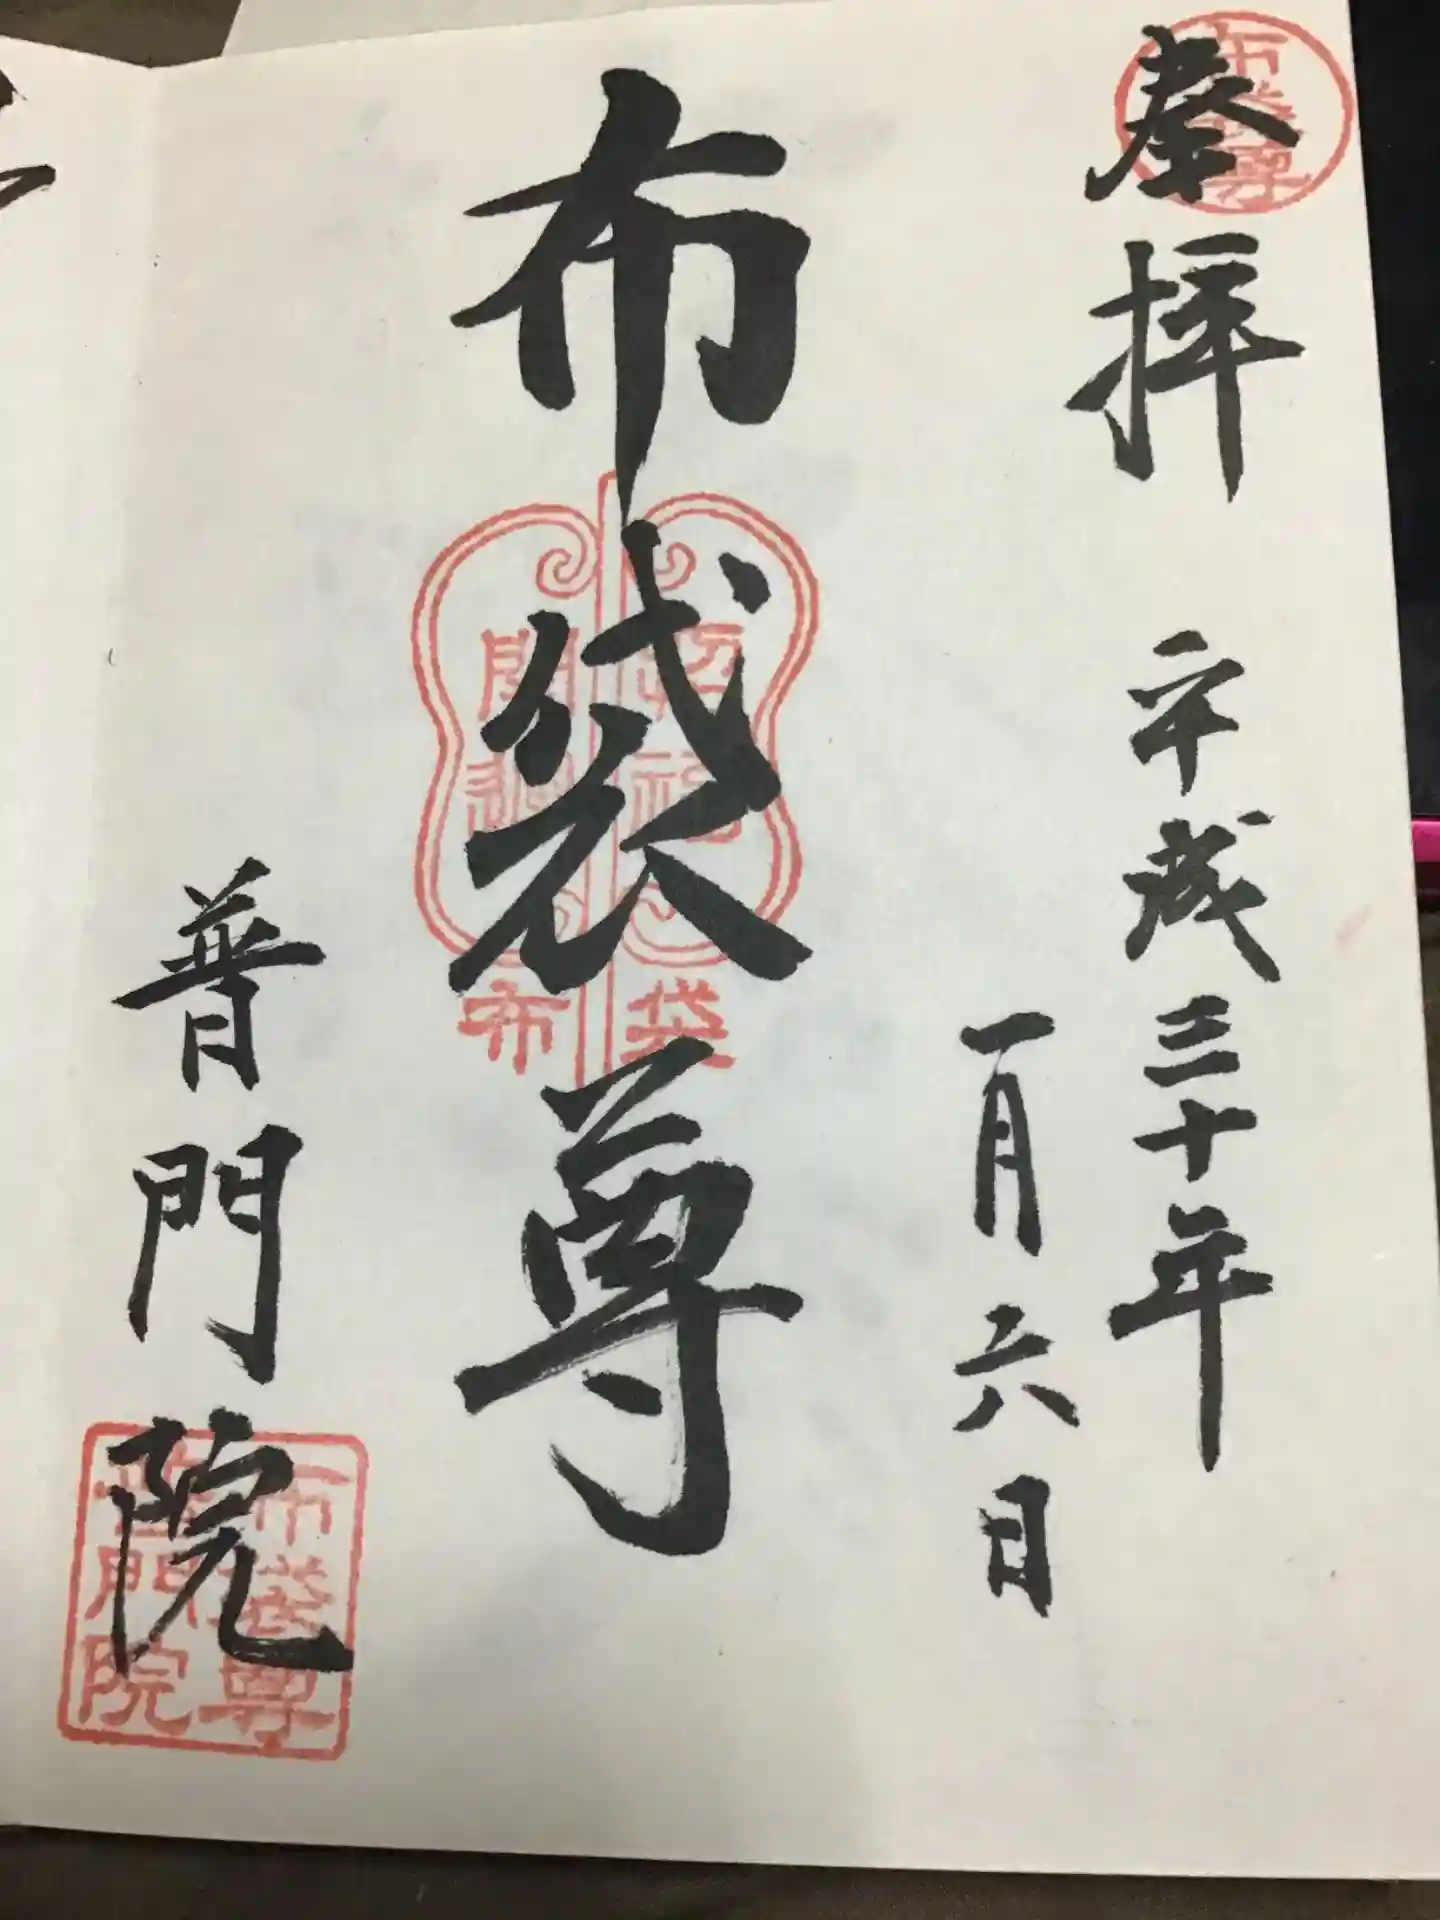 奉拝
平成三十年
一月六日
布袋尊
布袋
普門院
布袋尊
普門院
布袋尊